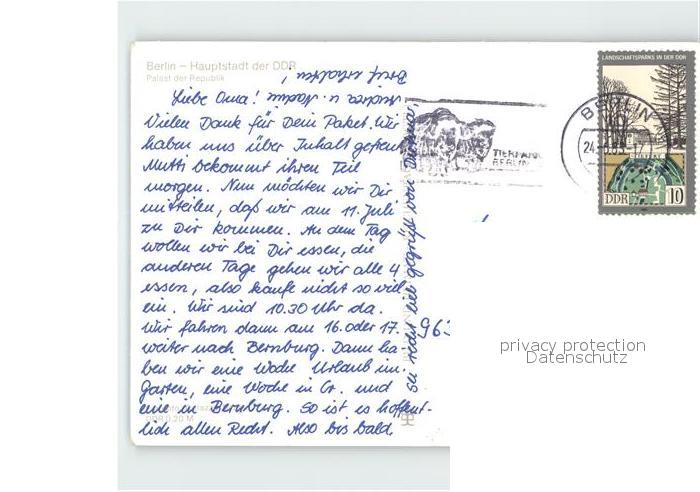 Berlin – Hauptstadt der DDR
Palast der Republik
Liebe Oma!
Vielen Dank für Dein Paket. Wir
haben uns über Inhalt gefreut
Mutti bekommt ihren Teil
morgen. Nun möchten wir Dir
mitteilen, daß wir am 11. Juli
zu Dir kommen. An dem Tag
wollen wir bei Dir essen, die
anderen Tage gehen wir alle 4
essen, also kaufe nicht so viel
ein. Wir sind 10.30 Uhr da.
Wir fahren dann am 16. oder 17.
weiter nach Bernburg. Dann ha
ben wir eine Woche Urlaub im
Garten, eine Woche in Gr. und
eine in Bernburg. So ist es hoffent-
lich allen Recht. Also bis bald,
sei recht lieb gegrüßt von Dietmar,
u. Nadin
Brief erhalten!
963
TIERPARK
BERLIN
BERLIN
24
17
LANDSCHAFTSPARKS IN DER DDR
DDR 10
privacy protection
Datenschutz